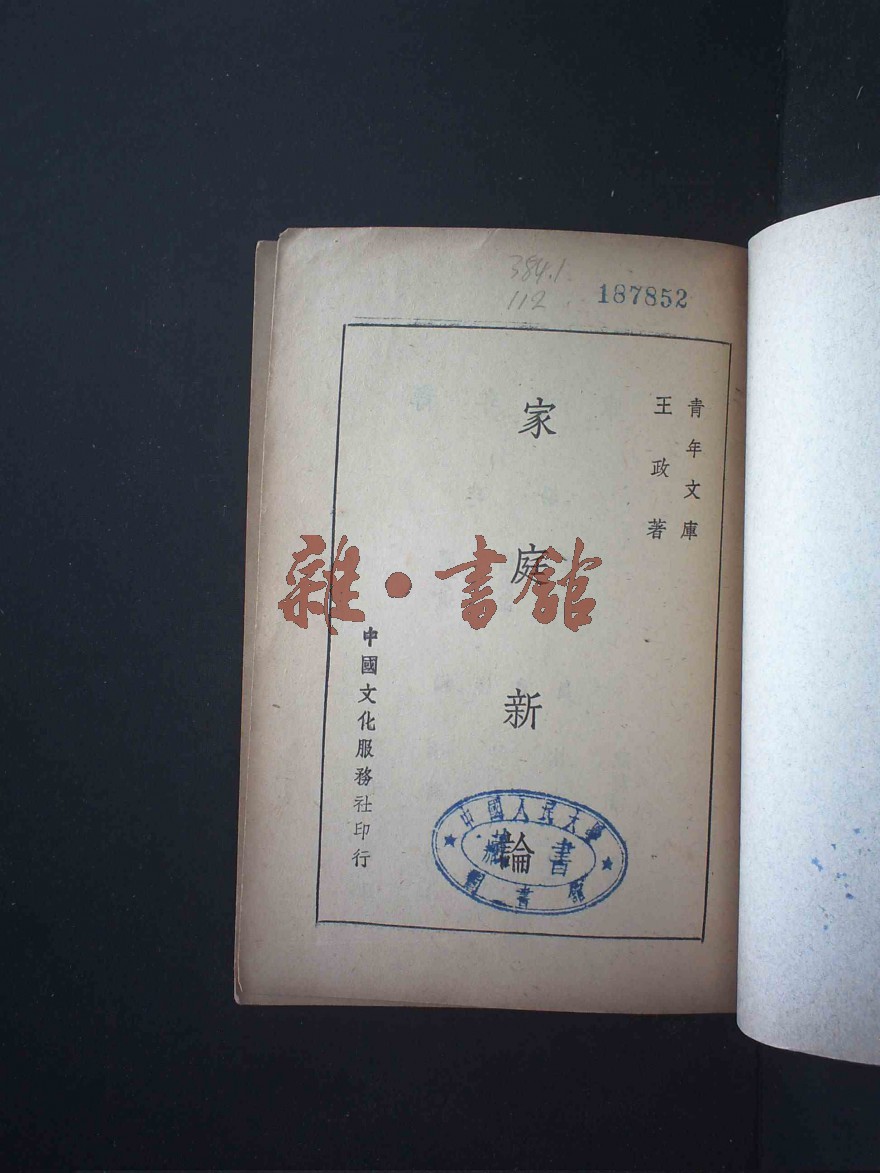 384.1
112
187852
青年文庫
王政著
家庭新論
中國文化服務社印行
雜·書館
中國人民大學
藏書
圖書館